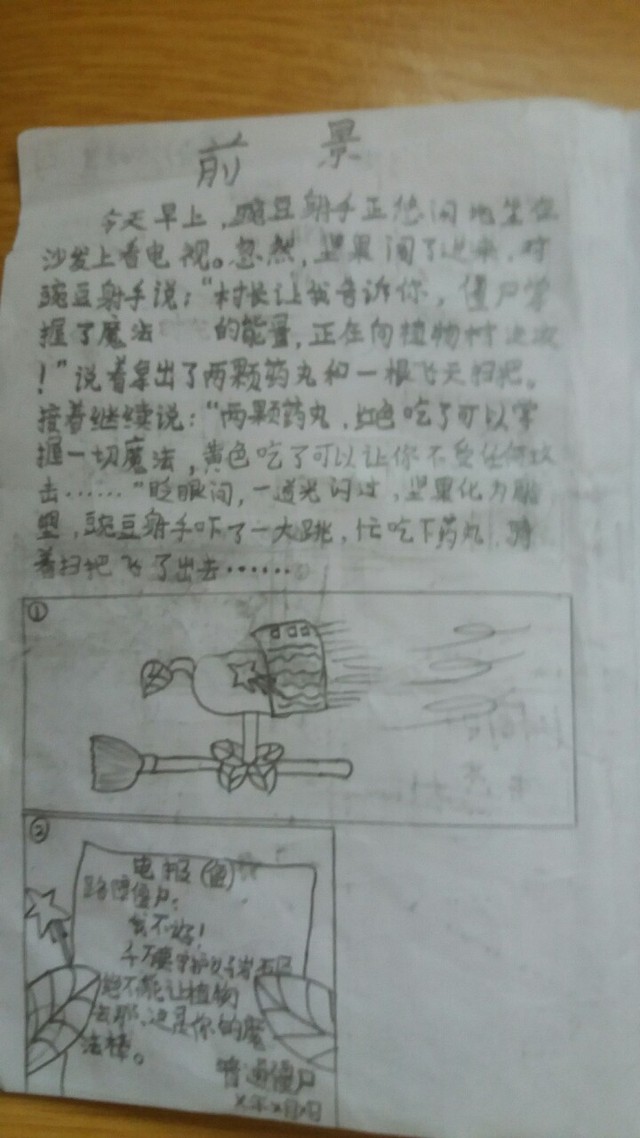 前景
今天早上，豌豆射手正悠闲地坐在
沙发上看电视。忽然，坚果闯了进来，对
豌豆射手说：“村长让我告诉你，僵尸掌
握了魔法 的能量，正在向植物村进攻
！”说着拿出了两颗药丸和一根飞天扫把。
接着继续说：“两颗药丸，红色吃了可以掌
握一切魔法，黄色吃了可以让你不受任何攻
击……”眨眼间，一道光闪过，坚果化为雕
塑，豌豆射手吓了一大跳，忙吃下药丸，骑
着扫把飞了出去……
①
②
电报
路障僵尸：
你不好！
千万要守护好岩石区
绝不能让植物
去那，这是你的魔
法棒。
普通僵尸
X年X月X日